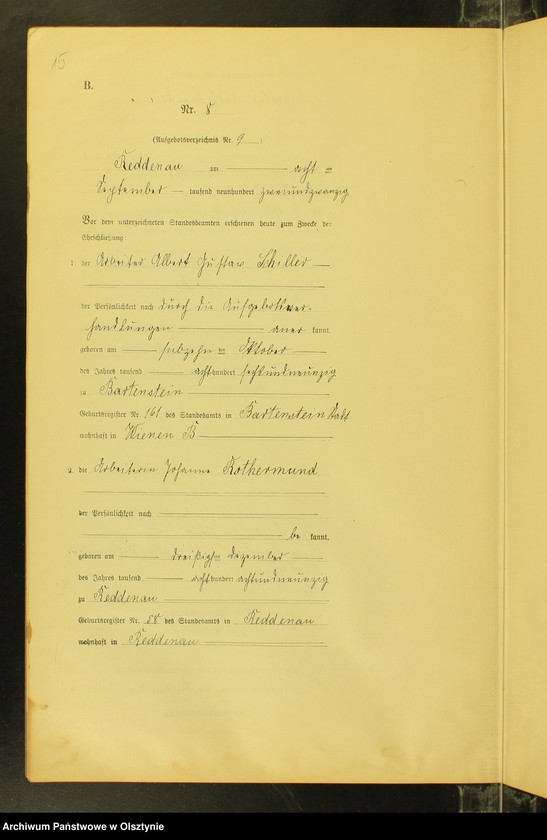 15
B.
Nr. 8
(Aufgebotsverzeichnis Nr. 9)
Reddenau am acht ten
September tausend neunhundert zweiundzwanzig
Vor dem unterzeichneten Standesbeamten erschienen heute zum Zwecke der
Eheschließung:
1. der Arbeiter Albert Gustav Schiller
der Persönlichkeit nach durch die Aufgebotsver-
handlungen aner kannt,
geboren am siebzehn ten Oktober
des Jahres tausend achthundert sechsundneunzig
zu Bartenstein
Geburtsregister Nr. 161 des Standesamts in Bartenstein Stadt
wohnhaft in B
2. die Arbeiterin Johanne Rothermund
der Persönlichkeit nach
be kannt,
geboren am dreißigsten Dezember
des Jahres tausend achthundert achtundneunzig
zu Reddenau
Geburtsregister Nr. 58 des Standesamts in Reddenau
wohnhaft in Reddenau
Archiwum Państwowe w Olsztynie